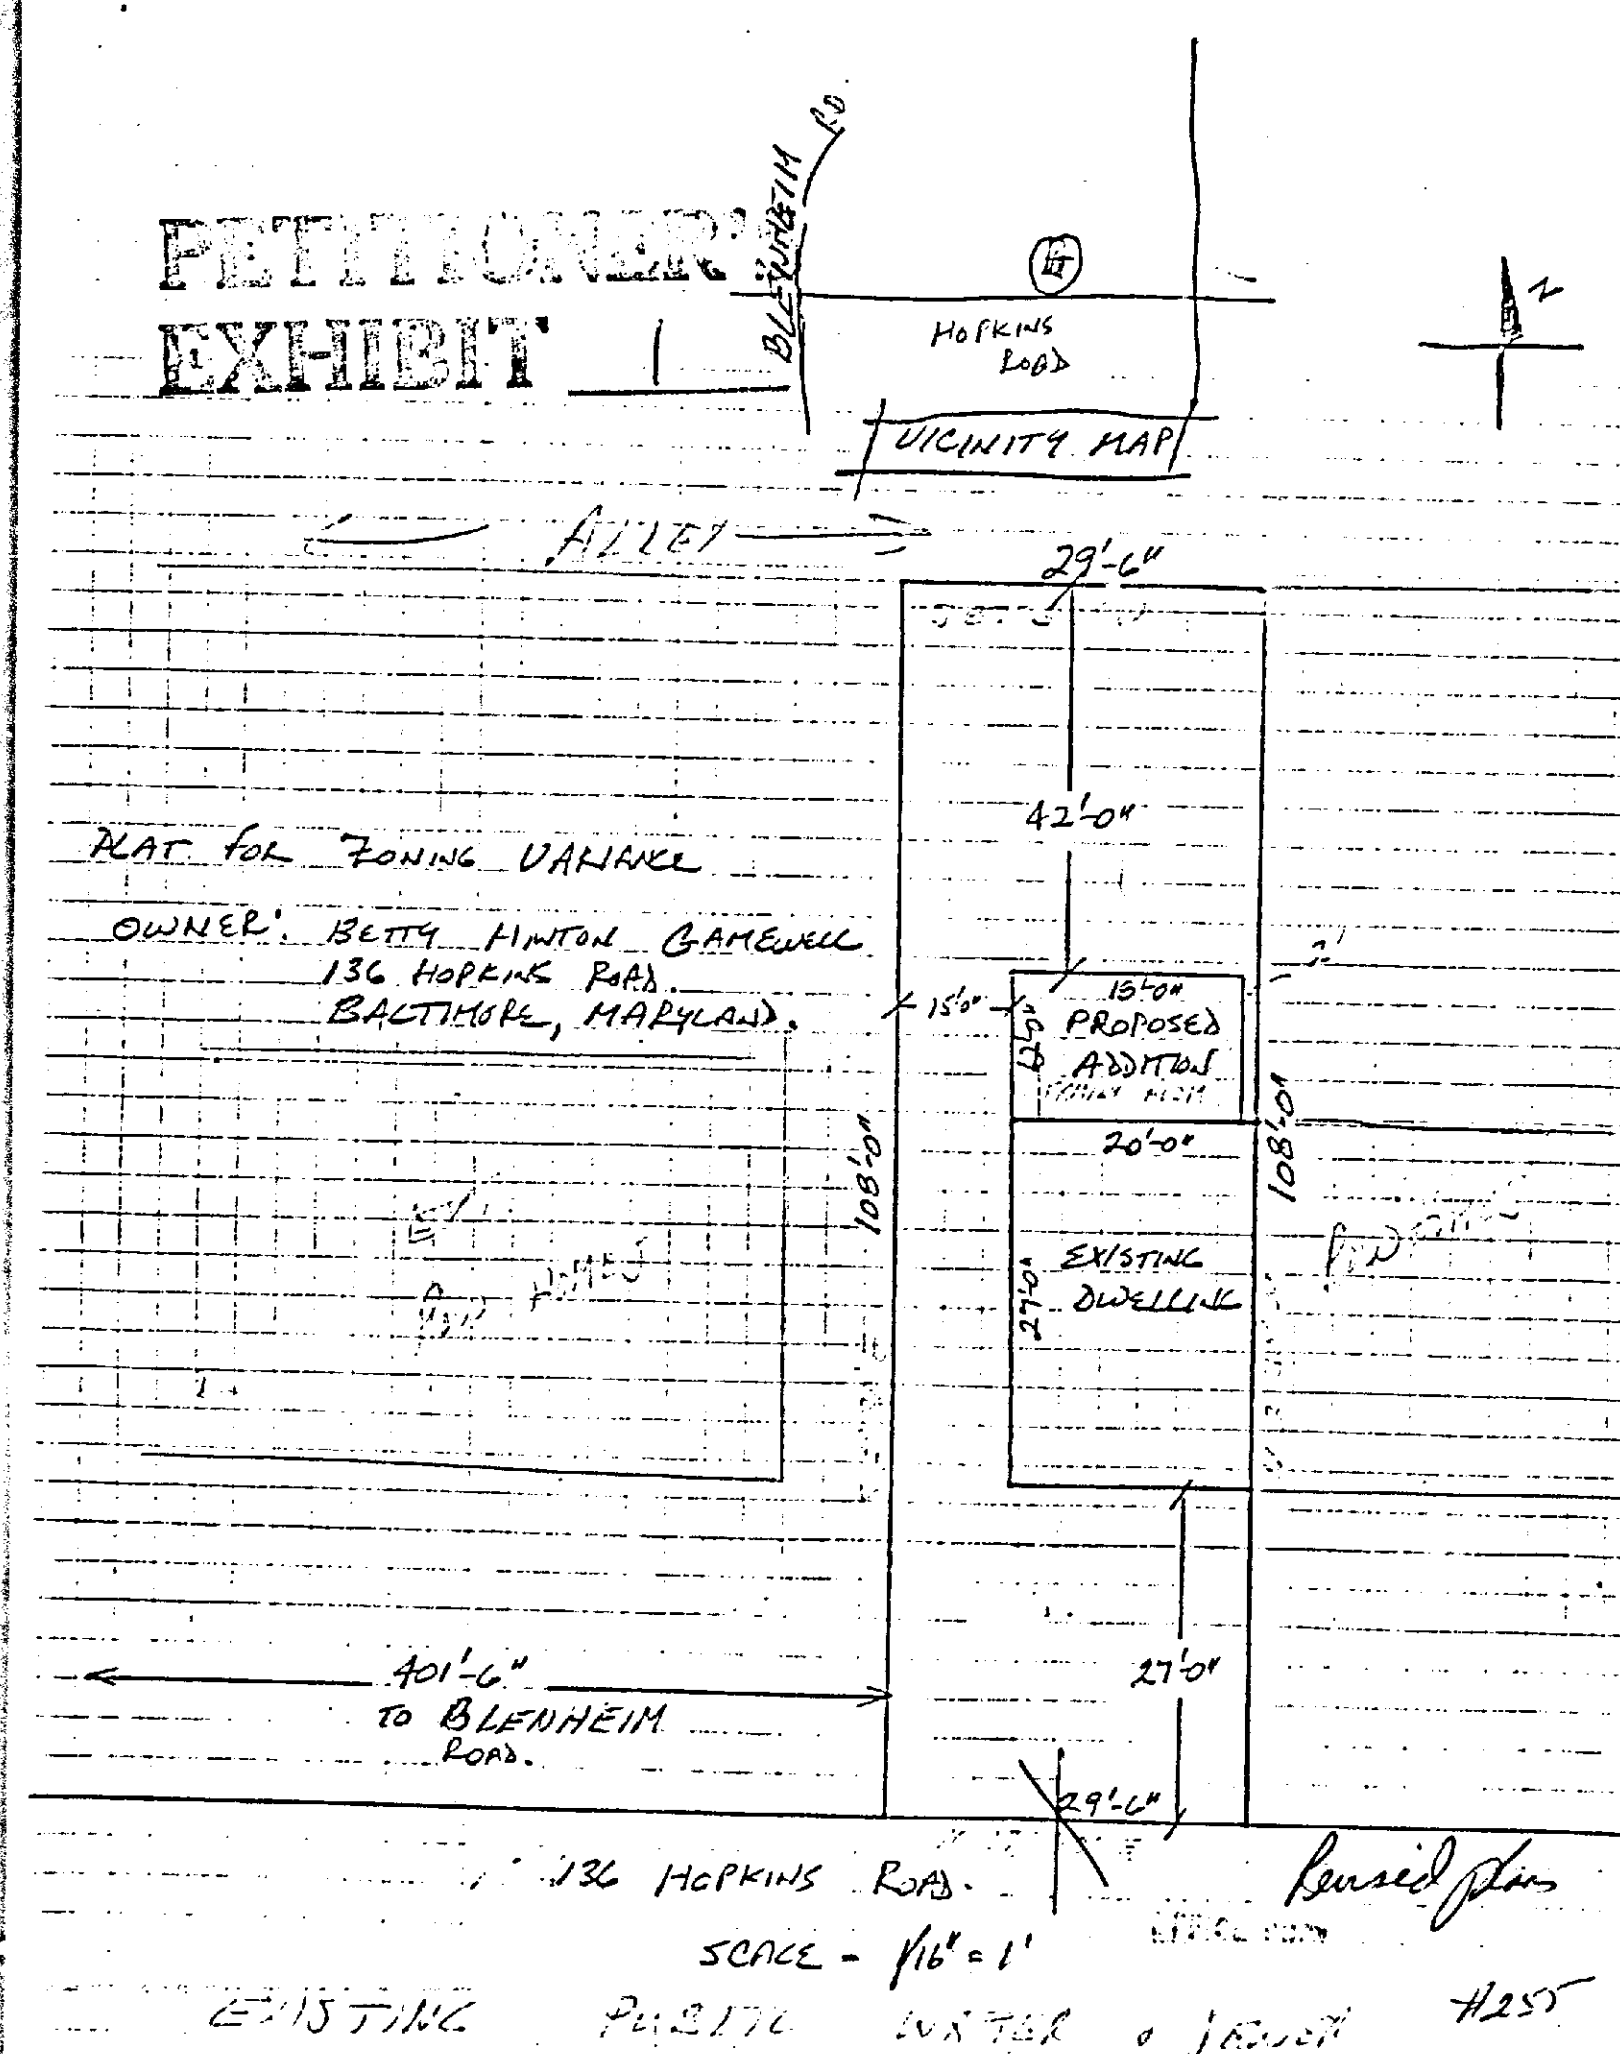 BLENHEIM RD.
PETITIONER'S
EXHIBIT 1
HOPKINS
ROAD
N
VICINITY MAP
ALLEY
29'-6"
42'-0"
PLAT FOR ZONING VARIANCE
OWNER: BETTY HINTON GAMEWELL
136 HOPKINS ROAD.
BALTIMORE, MARYLAND.
2'
15'0"
15'-0"
12'-0"
PROPOSED
ADDITION
FAMILY ROOM
108'-0"
20'-0"
108'-0"
EXISTING
DWELLING
27'-0"
ROW HOMES
ROW
401'-6"
TO BLENHEIM
ROAD.
27'-0"
29'-6"
136 HOPKINS ROAD.
Revised plans
SCALE - 1/16" = 1'
OFFICE COPY
#255
EXISTING PUBLIC WATER & SEWER